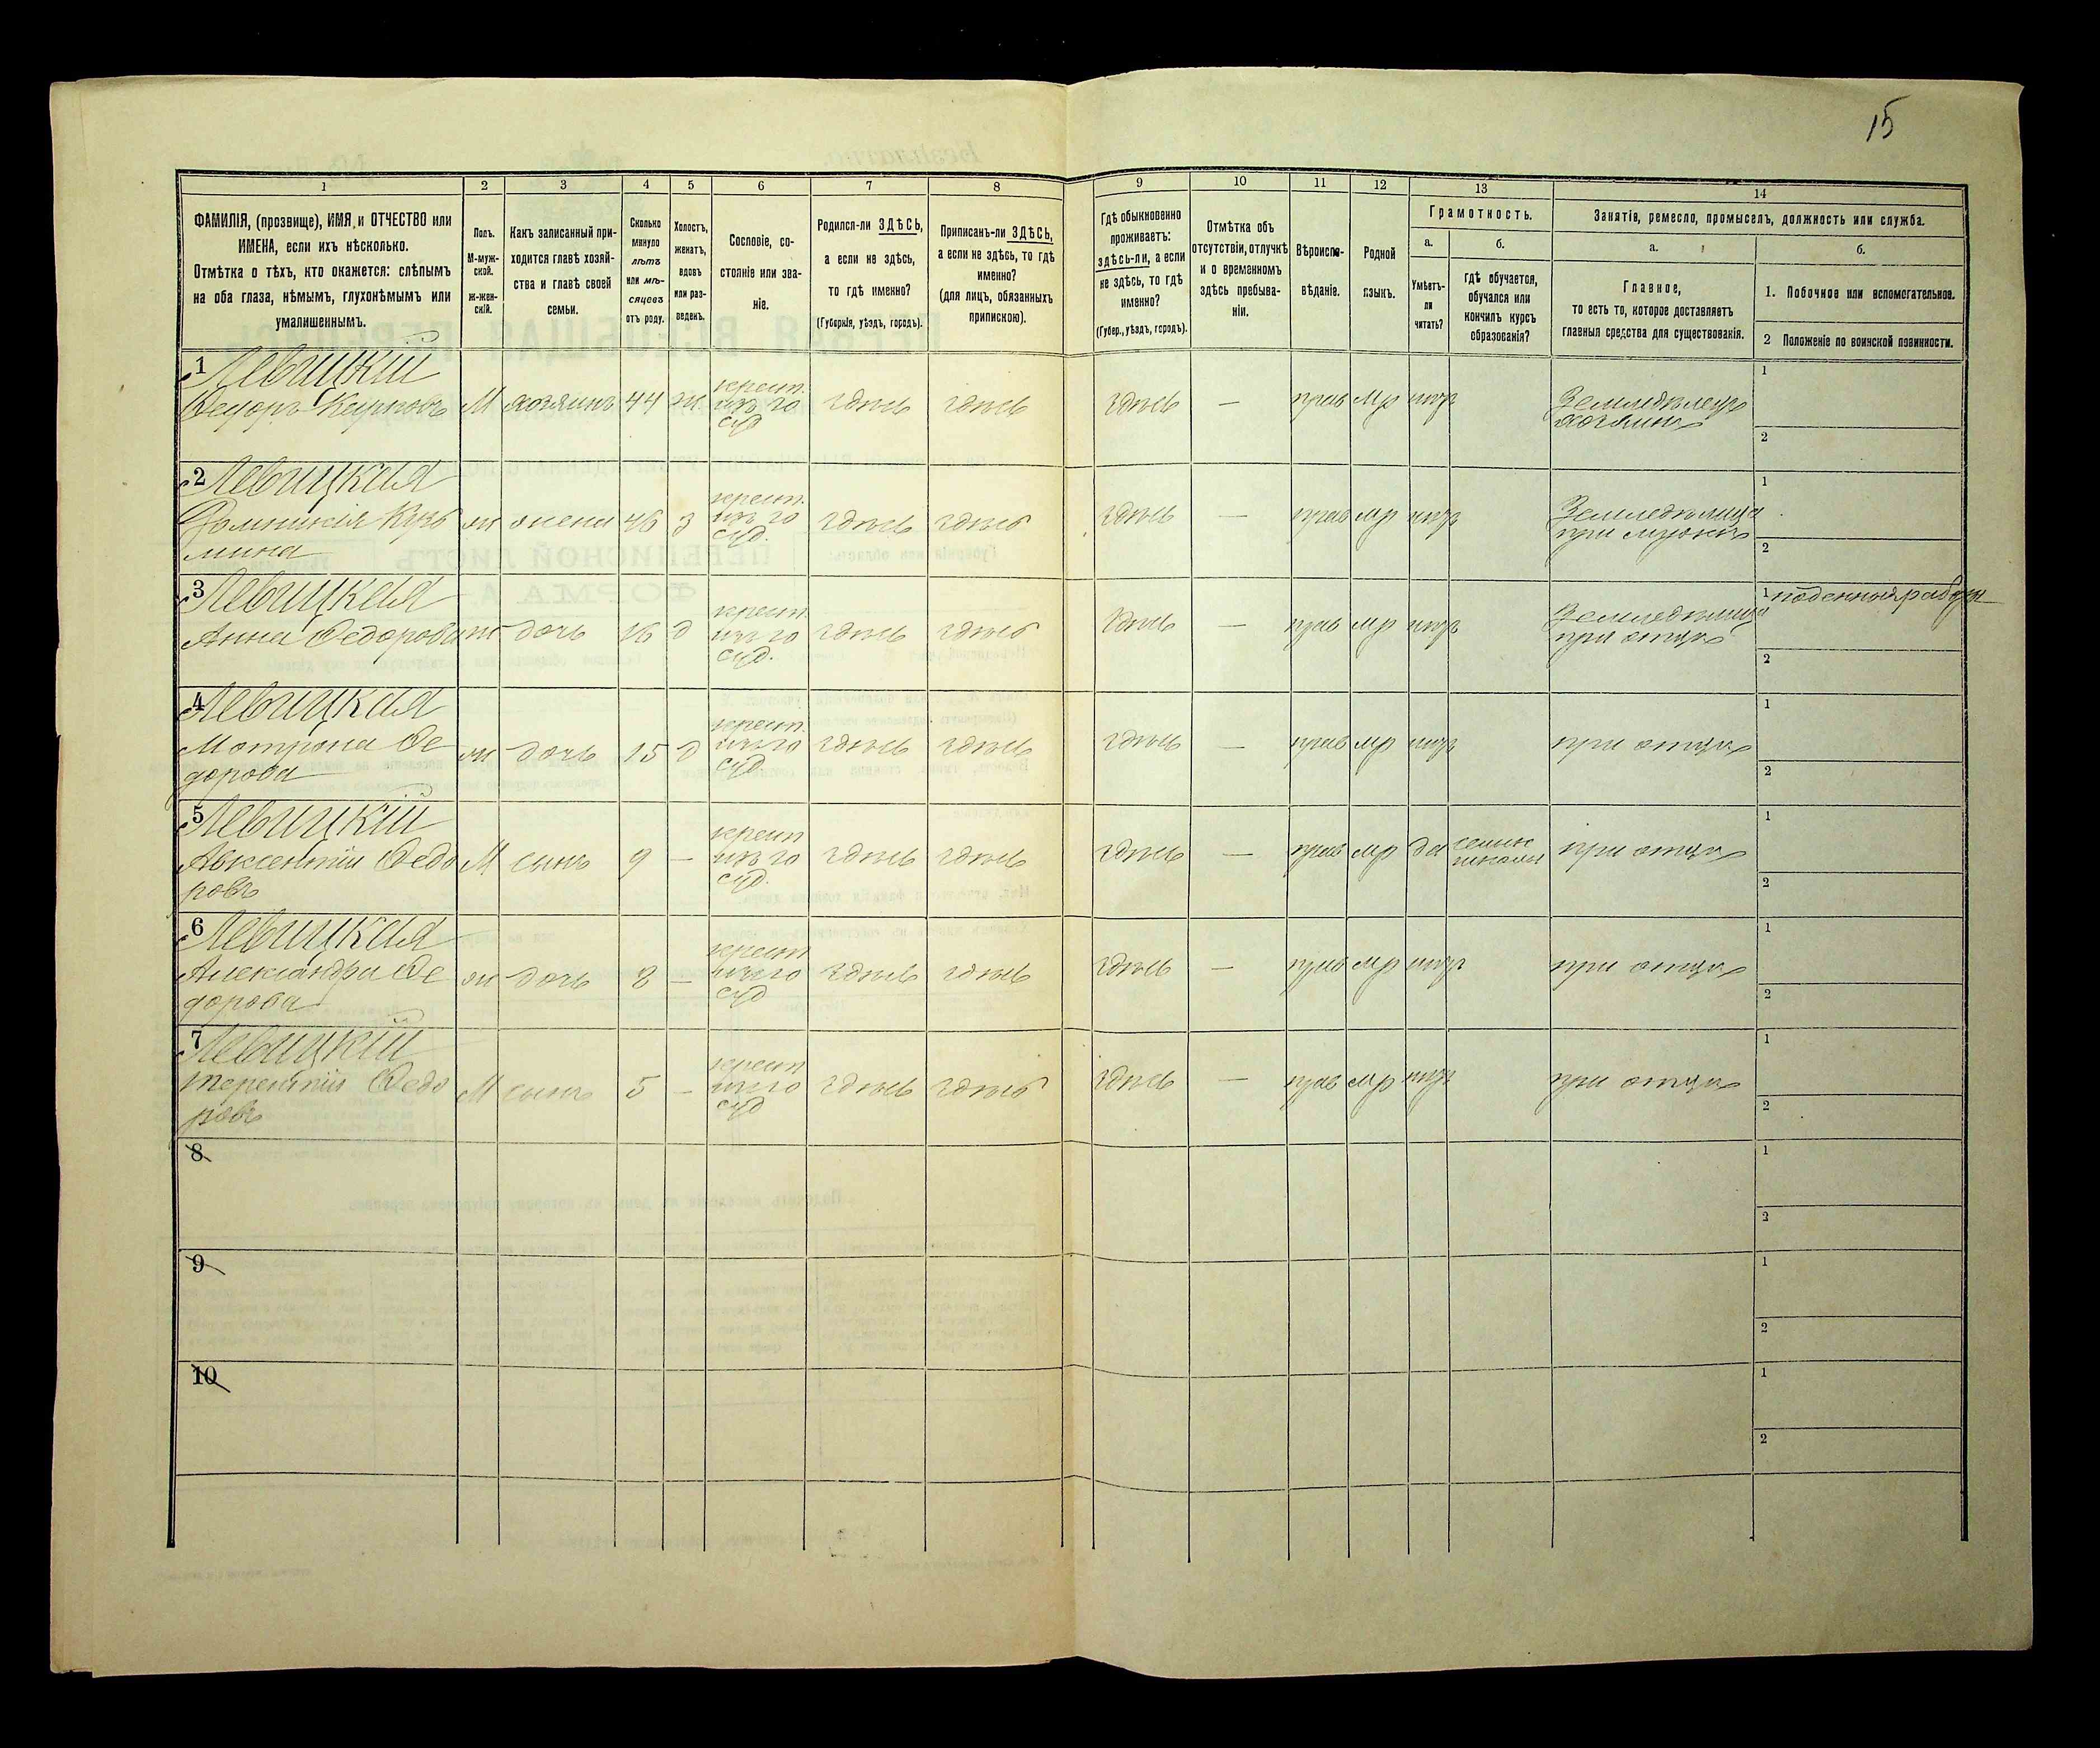 15
1 2 3 4 5 6 7 8 9 10 11 12 13 14
ФАМИЛІЯ, (прозвище), ИМЯ и ОТЧЕСТВО или
ИМЕНА, если ихъ нѣсколько.
Отмѣтка о тѣхъ, кто окажется: слѣпымъ
на оба глаза, нѣмымъ, глухонѣмымъ или
умалишеннымъ.
Полъ.
М-муж-
ской.
ж-жен-
скій.
Какъ записанный при-
ходится главѣ хозяй-
ства и главѣ своей
семьи.
Сколько
минуло
лѣтъ
или мѣ-
сяцевъ
отъ роду.
Холостъ,
женатъ,
вдовъ
или раз-
веденъ.
Сословіе, со-
стояніе или зва-
ніе.
Родился-ли ЗДѢСЬ,
а если не здѣсь,
то гдѣ именно?
(Губернія, уѣздъ, городъ).
Приписанъ-ли ЗДѢСЬ,
а если не здѣсь, то гдѣ
именно?
(для лицъ, обязанныхъ
припискою).
Гдѣ обыкновенно
проживаетъ:
здѣсь-ли, а если
не здѣсь, то гдѣ
именно?
(Губер., уѣздъ, городъ).
Отмѣтка объ
отсутствіи, отлучкѣ
и о временномъ
здѣсь пребыва-
ніи.
Вѣроиспо-
вѣданіе.
Родной
языкъ.
Грамотность.
а.
Умѣетъ-
ли
читать?
б.
Гдѣ обучается,
обучался или
кончилъ курсъ
образованія?
Занятіе, ремесло, промыселъ, должность или служба.
а.
Главное,
то есть то, которое доставляетъ
главныя средства для существованія.
б.
1. Побочное или вспомогательное.
2 Положеніе по воинской повинности.
1 Левицкій
Федоръ Карповъ М хозяинъ 44 ж. крест. изъ го суд здѣсь здѣсь здѣсь — прав мр нѣтъ Земледѣлецъ хозяинъ
1
2
2 Левицкая
Домникія Кузь
мина ж жена 46 з крест. изъ го суд. здѣсь здѣсь здѣсь — прав мр нѣтъ Земледѣлица при мужѣ
1
2
3 Левицкая
Анна Федорова ж дочь 16 д крест. изъ го суд. здѣсь здѣсь здѣсь — прав мр нѣтъ Земледѣлица при отцѣ
1 поденная
2
4 Левицкая
Мотрона Фе
дорова ж дочь 15 д крест. изъ го суд. здѣсь здѣсь здѣсь — прав мр нѣтъ при отцѣ
1
2
5 Левицкій
Авксентій Федо
ровъ М сынъ 9 — крест изъ го суд. здѣсь здѣсь здѣсь — прав мр да школы при отцѣ
1
2
6 Левицкая
Александра Фе
дорова ж дочь 8 — крест изъ го суд здѣсь здѣсь здѣсь — прав мр нѣтъ при отцѣ
1
2
7 Левицкій
Терентій Федо
ровъ М сынъ 5 — крест изъ го суд здѣсь здѣсь здѣсь — прав мр нѣтъ при отцѣ
1
2
8
1
2
9
1
2
10
1
2